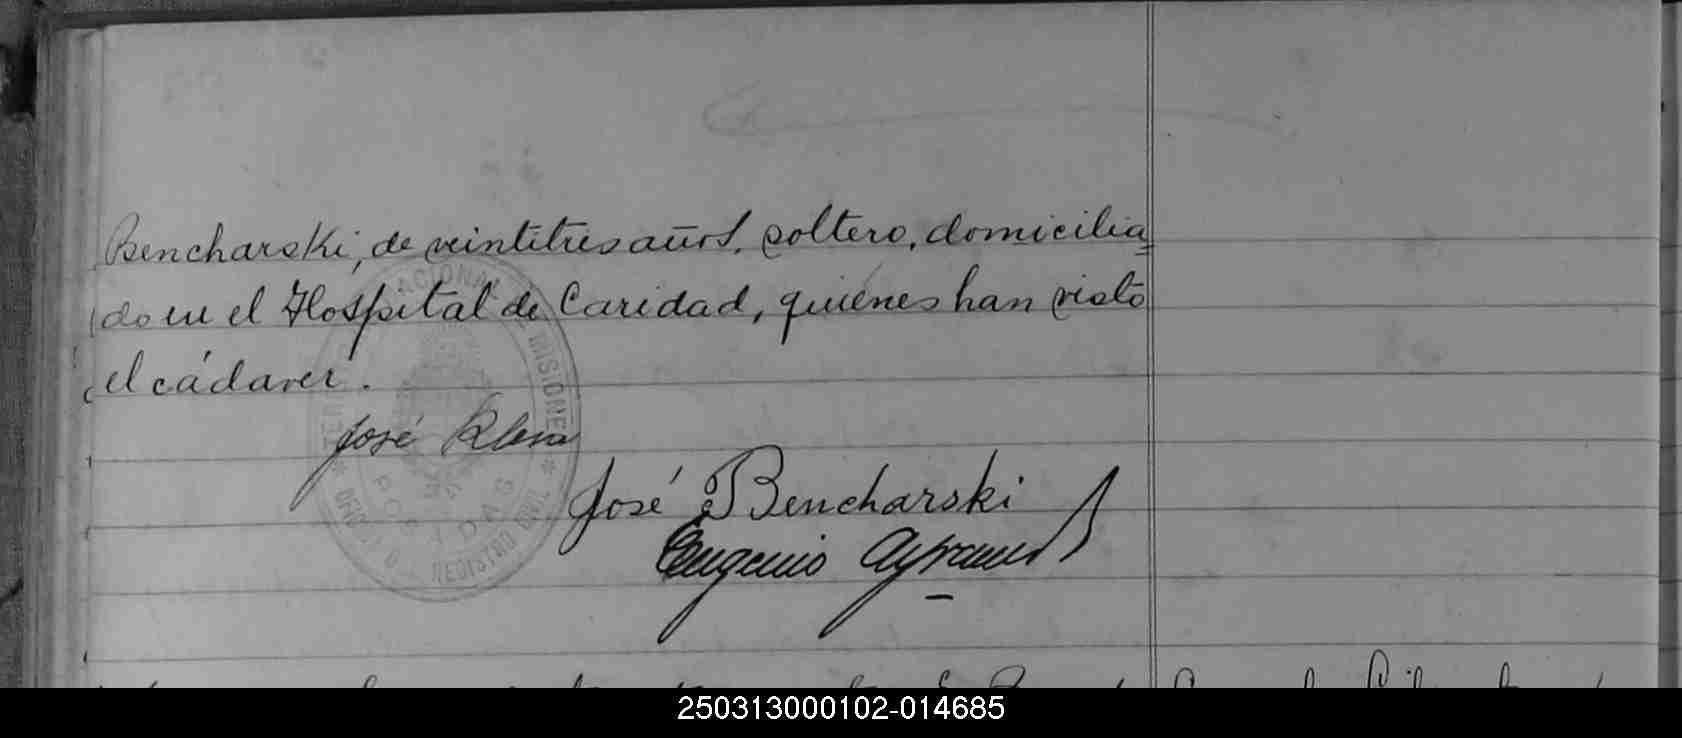 Bencharski, de veintitres años, soltero, domicilia=
do en el Hospital de Caridad, quienes han visto
el cádaver.
José
José Bencharski
Eugenio
NACIONAL DE MISIONES
POSADAS
REGISTRO CIVIL
250313000102-014685